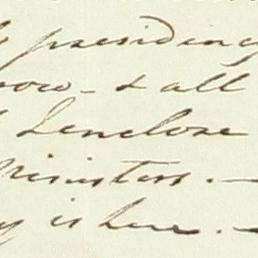 presiding
row - & all
I enclose
Ministers. -
y is here. -